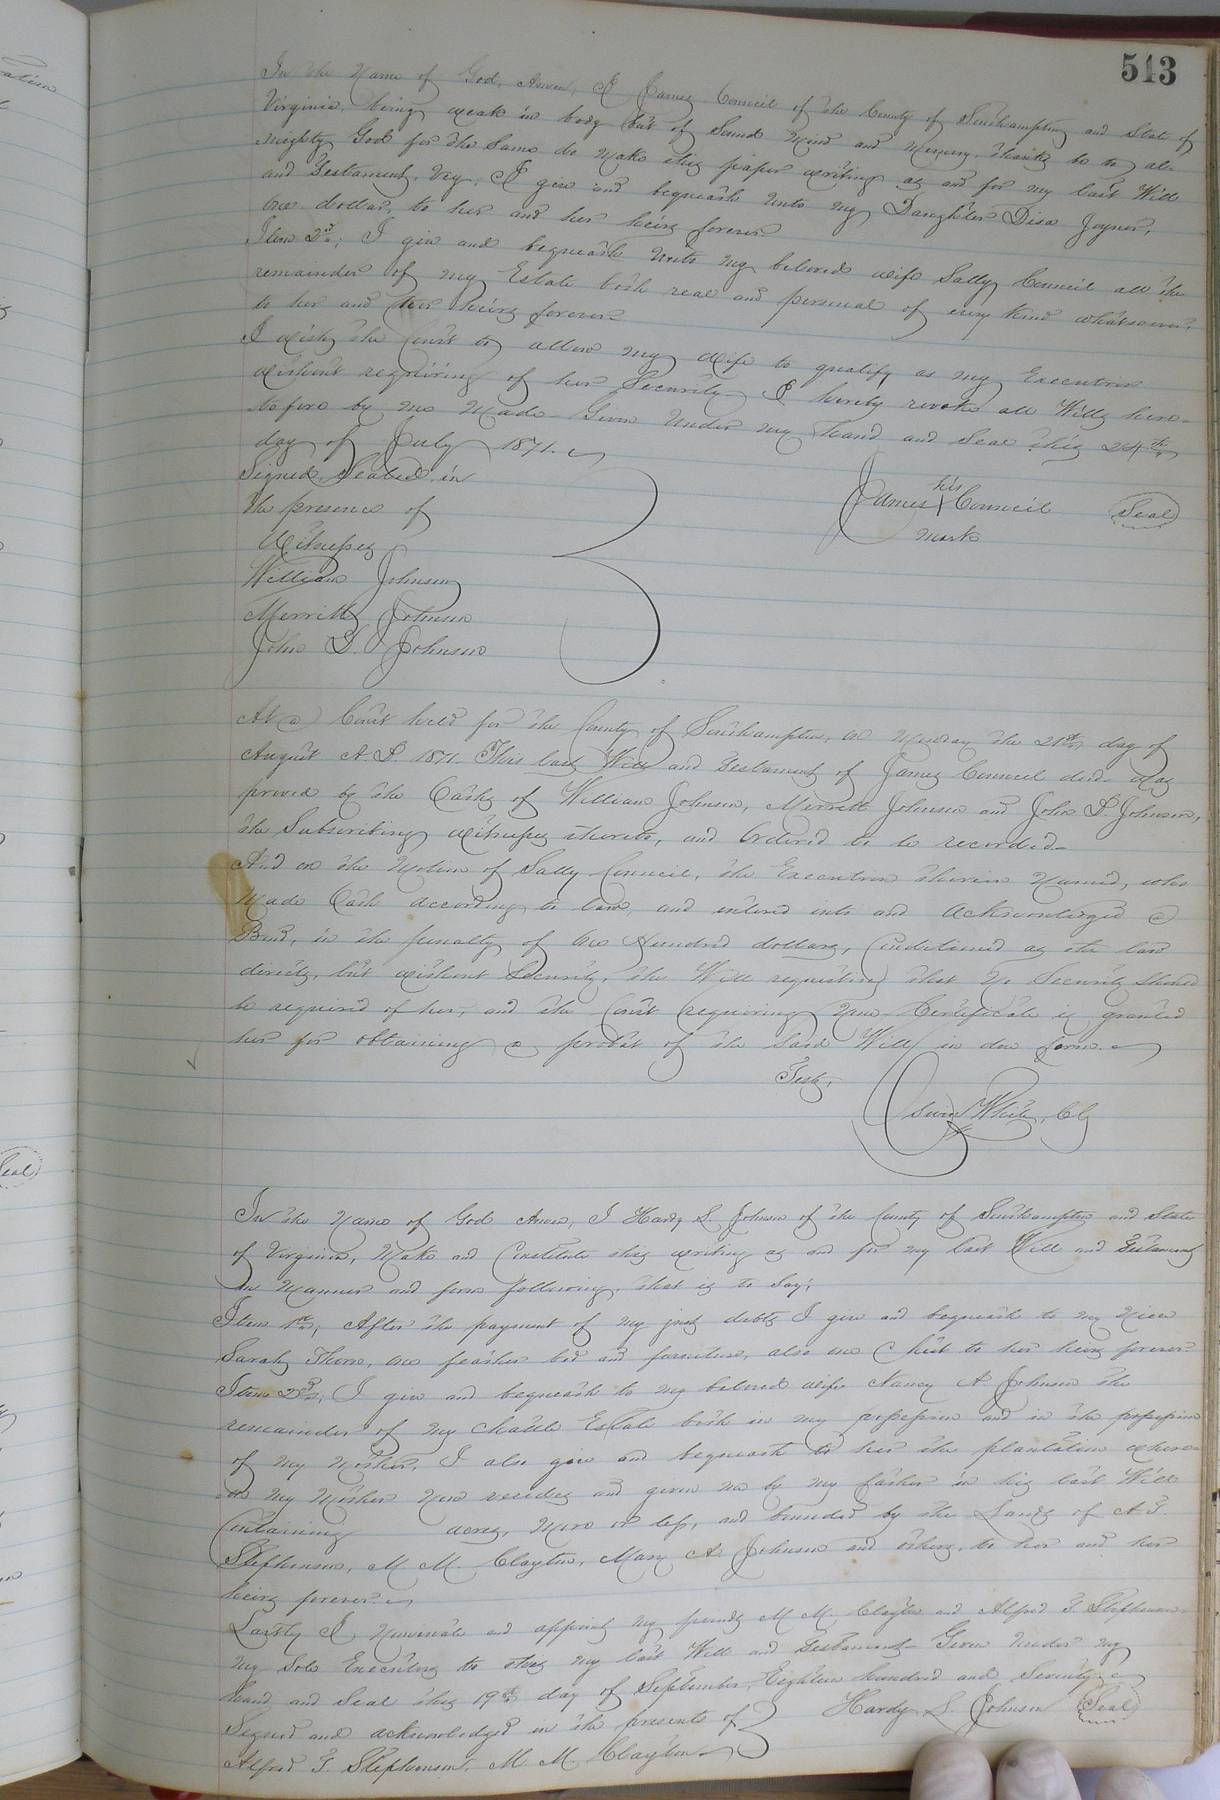 513
In the Name of God, Amen, I James Council of the County of Southampton and State of
Virginia, being weak in body but of Sound Mind and Memory, thanks be to al-
mighty God for the Same do Make this paper writing as and for my last Will
and Testament. Viz; I give and bequeath unto my Daughter Disa Joyner,
One dollar, to her and her heirs forever
Item 2nd; I give and bequeath unto my beloved wife Sally Council all the
remainder of my Estate both real and personal of every Kind whatsoever,
to her and her heirs forever
I wish the Court to allow my wife to qualify as my Executrix
without requiring of her Security. I hereby revoke all Wills here-
tofore by me Made. Given Under my hand and Seal this 24th
day of July 1871.
Signed, Sealed in
the presence of
Witnesses
James his X mark Council Seal
William Johnson
Merritt Johnson
John D. Johnson
At a Court held for the County of Southampton, on Monday the 21st day of
August A.D. 1871. This last Will and Testament of James Council decd. was
proved by the Oaths of William Johnson, Merritt Johnson and John D. Johnson,
the Subscribing witnesses thereto, and Ordered to be recorded.
And on the Motion of Sally Council, the Executrix therein Named, who
Made Oath according to law, and entered into and acknowledged a
Bond, in the penalty of One Hundred dollars, Conditioned as the law
directs, but without Security, the Will requesting that No Security Should
be required of her, and the Court requiring None Certificate is granted
her for obtaining a probat of the Said Will in due form.
Test,
White, Clk
In the Name of God Amen, I Hardy S. Johnson of the County of Southampton and State
of Virginia, Make and Constitute this writing as and for my last Will and Testament
in Manner and form following, that is to Say;
Item 1st, After the payment of my just debts I give and bequeath to my Niece
Sarah Thorn, one feather bed and furniture, also one Chest to her heirs forever
Item 2nd, I give and bequeath to my beloved wife Nancy A. Johnson the
remainder of my chattle Estate both in my possession and in the possession
of my Mother, I also give and bequeath to her the plantation where-
on my Mother Now resides and given me by my father in his last Will
Containing acres, More or less, and bounded by the Lands of A. F.
Stephenson, M. M. Clayton, Mary A. Johnson and others, to her and her
heirs forever.
Lastly I Nominate and appoint my friends M. M. Clayton and Alfred F. Stephenson
my Sole Executors to this my last Will and Testament. Given Under my
hand and Seal this 19th day of September, Eighteen hundred and Seventy.
Signed and acknowledged in the presents of
Hardy S. Johnson Seal
Alfred F. Stephenson, M. M. Clayton